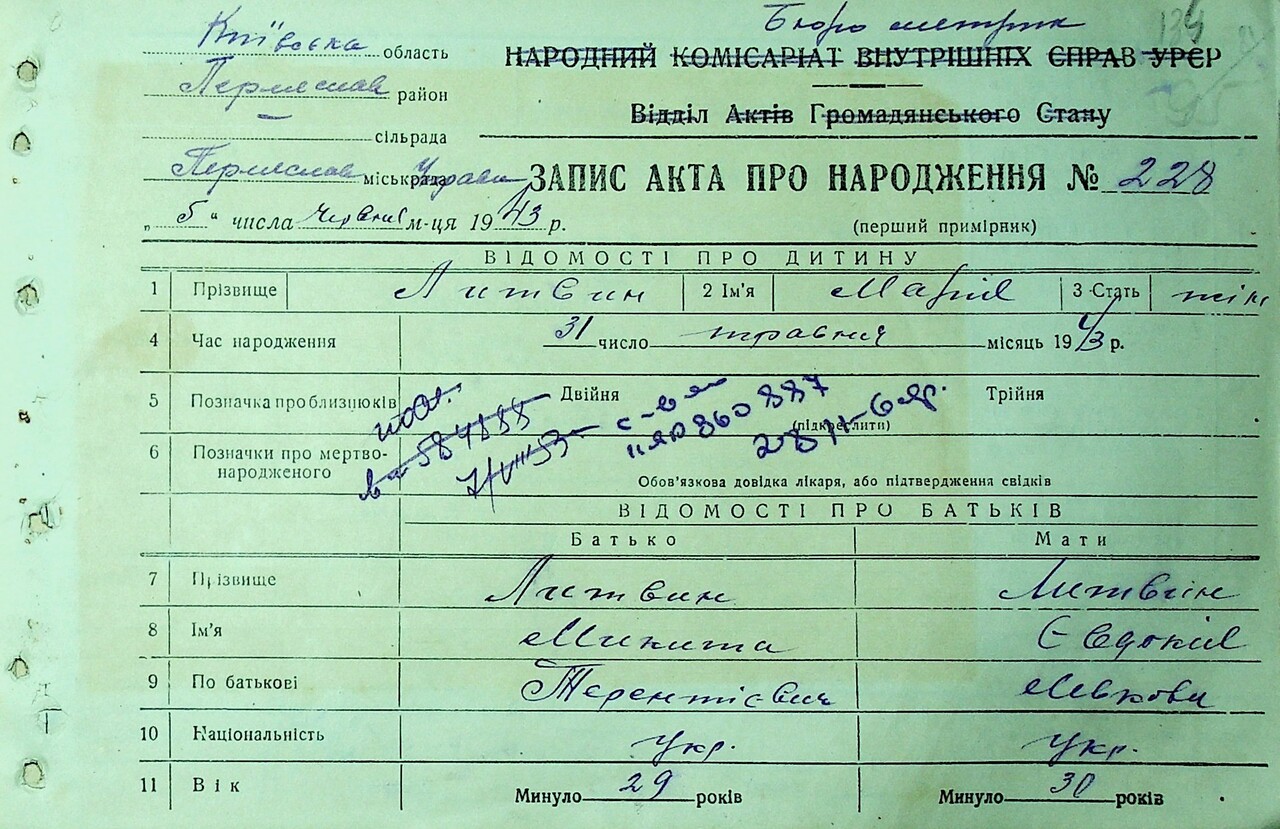 Київська область
Бюро метрик
134
НАРОДНИЙ КОМІСАРІАТ ВНУТРІШНІХ СПРАВ УРСР
Переяслав район
Відділ Актів Громадянського Стану
сільрада
Переяслав міськрада Управа
ЗАПИС АКТА ПРО НАРОДЖЕННЯ № 228
„5" числа червня м-ця 1943 р.
(перший примірник)
ВІДОМОСТІ ПРО ДИТИНУ
1 Прізвище Литвин 2 Ім'я Марія 3 Стать жін
4 Час народження 31 число травня місяць 1943 р.
5 Позначка про близнюків Двійня Трійня
(підкреслити)
6 Позначки про мертво-
народженого
Обов'язкова довідка лікаря, або підтвердження свідків
ВІДОМОСТІ ПРО БАТЬКІВ
Батько Мати
7 Прізвище Литвин Литвин
8 Ім'я Микита Євдокія
9 По батькові Терентієвич Левкови
10 Національність Укр. Укр.
11 Вік Минуло 29 років Минуло 30 років